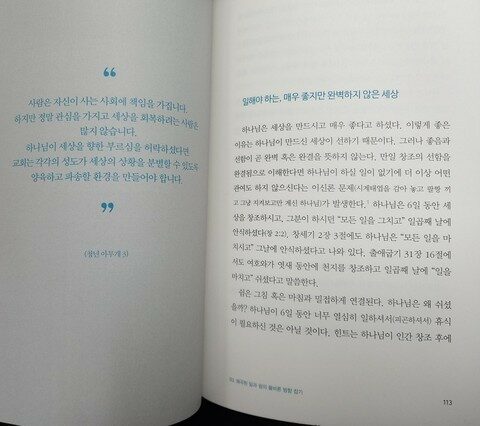 “
사람은 자신이 사는 사회에 책임을 가집니다.
하지만 정말 관심을 가지고 세상을 회복하려는 사람은
많지 않습니다.
하나님이 세상을 향한 부르심을 허락하셨다면
교회는 각각의 성도가 세상의 상황을 분별할 수 있도록
양육하고 파송할 환경을 만들어야 합니다.
”
(청년 아무개 3)
일해야 하는, 매우 좋지만 완벽하지 않은 세상
하나님은 세상을 만드시고 매우 좋다고 하셨다. 이렇게 좋은
이유는 하나님이 만드신 세상이 선하기 때문이다. 그러나 좋음과
선함이 곧 완벽 혹은 완결을 뜻하지 않는다. 만일 창조의 선함을
완결됨으로 이해한다면 하나님이 하실 일이 없기에 더 이상 어떤
관여도 하지 않으신다는 이신론 문제(시계태엽을 감아 놓고 팔짱 끼
고 그냥 지켜보고만 계신 하나님)가 발생한다. 하나님은 6일 동안 세
상을 창조하시고, 그분이 하시던 “모든 일을 그치고” 일곱째 날에
안식하셨다(창 2:2). 창세기 2장 3절에도 하나님은 “모든 일을 마
치시고” 그날에 안식하셨다고 나와 있다. 출애굽기 31장 16절에
서도 여호와가 엿새 동안에 천지를 창조하고 일곱째 날에 “일을
마치고” 쉬셨다고 말씀한다.
쉼은 그침 혹은 마침과 밀접하게 연결된다. 하나님은 왜 쉬셨
을까? 하나님이 6일 동안 너무 열심히 일하셔서(피곤하셔서) 휴식
이 필요하신 것은 아닐 것이다. 힌트는 하나님이 인간 창조 후에
03 왜곡된 일과 쉼의 올바른 방향 잡기
113